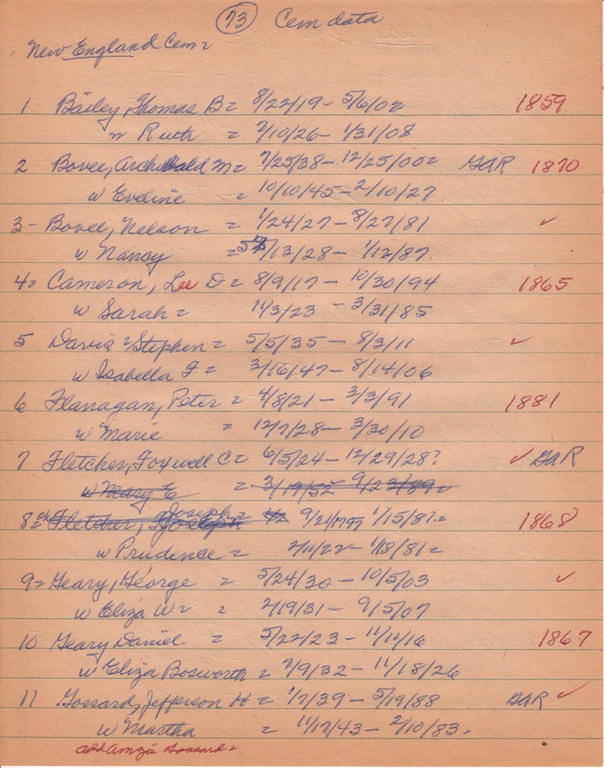 73 Cem data
New England Cem =
1 Bailey, Thomas B = 8/22/19 - 5/6/02 1859
w Ruth = 7/10/26 - 1/31/08
2 Bovee, Archibald M = 7/25/38 - 12/25/00 = GAR 1870
w Eveline = 10/10/45 - 2/10/27
3 - Bovee, Nelson = 1/24/27 - 8/27/81 ✓
w Nancy = 5/13/28 - 1/12/87
4 = Cameron, Lee D = 8/9/17 - 10/30/94 1865
w Sarah = 11/3/23 - 3/31/85
5 Davis = Stephen = 5/5/35 - 8/3/11 ✓
w Isabella F = 3/16/47 - 8/14/06
6 Flanagan, Peter = 4/8/21 - 3/3/91 1881
w Marie = 12/7/28 - 3/30/10
7 Fletcher, Foxwell C = 6/5/24 - 12/29/28? ✓ GAR
w Mary E = 3/19/52 9/23/89 =
8 = Fletcher, Joseph = 9/21/1797 1/15/81 = 1868
w Prudence = 2/11/22 - 1/18/81 =
9 = Geary, George = 5/24/30 - 10/5/03 ✓
w Eliza W = = 2/19/31 - 9/5/07
10 Geary Daniel = 5/22/23 - 11/11/16 1867
w Eliza Bosworth = 2/9/32 - 11/18/26
11 Gossard, Jefferson H = 1/7/39 - 5/19/88 GAR ✓
w Martha = 11/17/43 - 2/10/83 =
add Amzie Gossard =